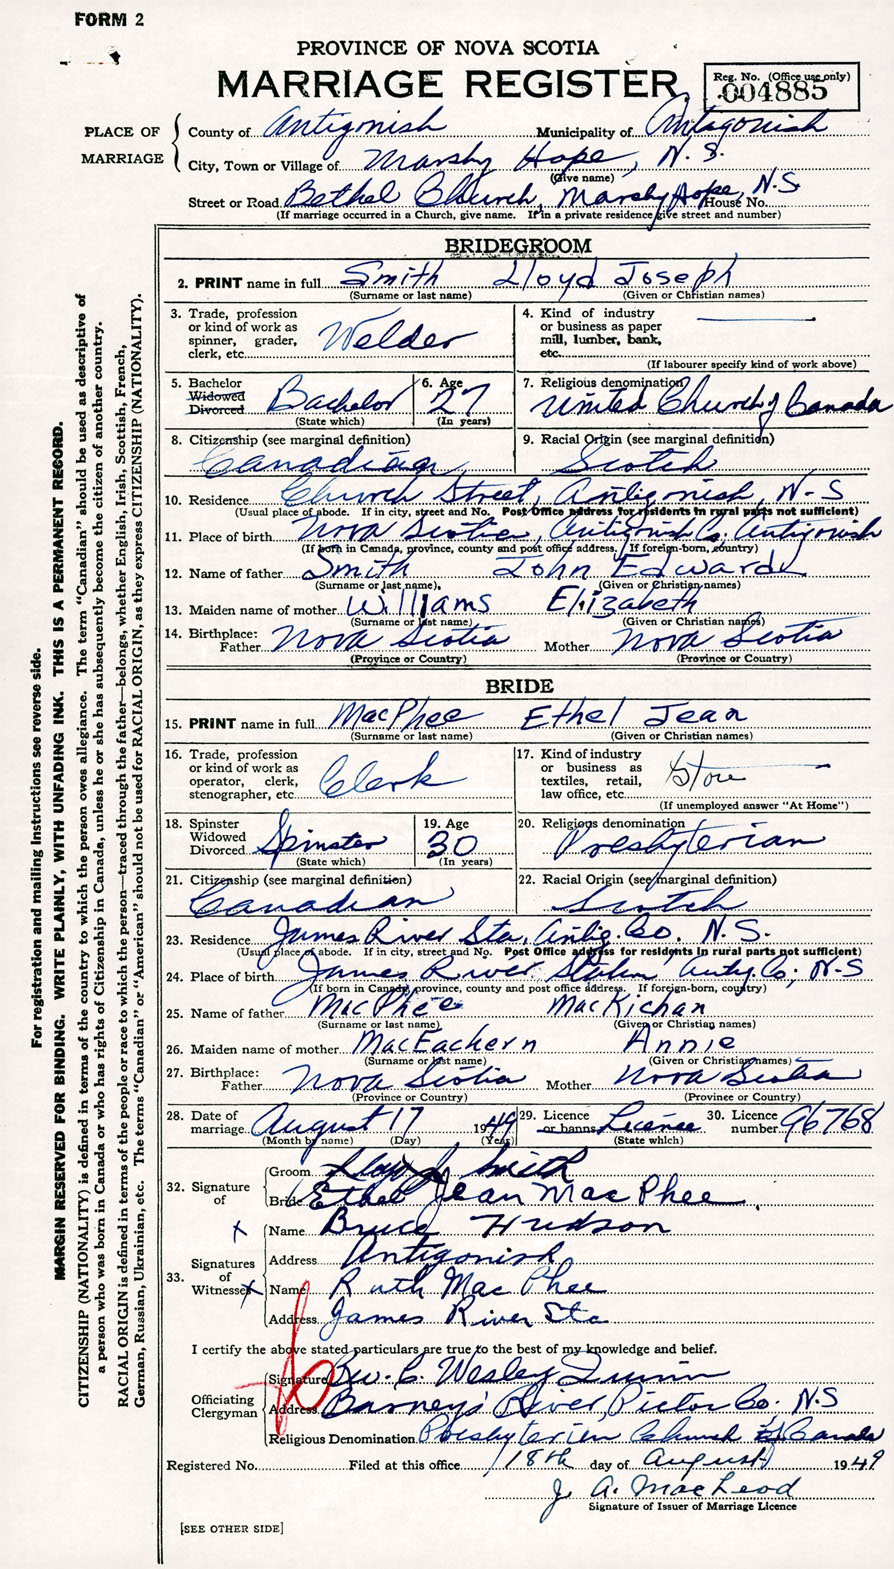 FORM 2
PROVINCE OF NOVA SCOTIA
MARRIAGE REGISTER
Reg. No. (Office use only)
004885
PLACE OF MARRIAGE
County of Antigonish Municipality of Antagonish
City, Town or Village of Marshy Hope, N.S.
(Give name)
Street or Road Bethel Church, Marshy Hope, N.S House No.
(If marriage occurred in a Church, give name. If in a private residence, give street and number)
BRIDEGROOM
2. PRINT name in full Smith Lloyd Joseph
(Surname or last name) (Given or Christian names)
3. Trade, profession or kind of work as spinner, grader, clerk, etc. Welder
4. Kind of industry or business as paper mill, lumber, bank, etc.
(If labourer specify kind of work above)
5. Bachelor Widowed Divorced Bachelor
(State which)
6. Age 27
(In years)
7. Religious denomination
United Church of Canada
8. Citizenship (see marginal definition)
Canadian
9. Racial Origin (see marginal definition)
Scotch
10. Residence Church Street, Antigonish, N-S
(Usual place of abode. If in city, street and No. Post Office address for residents in rural parts not sufficient)
11. Place of birth Nova Scotia, Antigonish Co. Antigonish
(If born in Canada, province, county and post office address. If foreign-born, country)
12. Name of father Smith John Edward
(Surname or last name), (Given or Christian names)
13. Maiden name of mother Williams Elizabeth
(Surname or last name) (Given or Christian names)
14. Birthplace: Father Nova Scotia Mother Nova Scotia
(Province or Country) (Province or Country)
BRIDE
15. PRINT name in full MacPhee Ethel Jean
(Surname or last name) (Given or Christian names)
16. Trade, profession or kind of work as operator, clerk, stenographer, etc. Clerk
17. Kind of industry or business as textiles, retail, law office, etc. Store
(If unemployed answer "At Home")
18. Spinster Widowed Divorced Spinster
(State which)
19. Age 30
(In years)
20. Religious denomination
Presbyterian
21. Citizenship (see marginal definition)
Canadian
22. Racial Origin (see marginal definition)
Scotch
23. Residence James River Sta, Antig. Co. N.S.
(Usual place of abode. If in city, street and No. Post Office address for residents in rural parts not sufficient)
24. Place of birth James River Station Antg. Co; N-S
(If born in Canada, province, county and post office address. If foreign-born, country)
25. Name of father MacPhee MacKichan
(Surname or last name) (Given or Christian names)
26. Maiden name of mother MacEachern Annie
(Surname or last name) (Given or Christian names)
27. Birthplace: Father Nova Scotia Mother Nova Scotia
(Province or Country) (Province or Country)
28. Date of marriage August 17 1949
(Month by name) (Day) (Year)
29. Licence or banns Licence
(State which)
30. Licence number 96768
32. Signature of
Groom Lloyd J Smith
Bride Ethel Jean MacPhee
33. Signatures of Witnesses
x Name Bruce Hudson
Address Antigonish
x Name Ruth MacPhee
Address James River Sta
I certify the above stated particulars are true to the best of my knowledge and belief.
Officiating Clergyman
Signature Rev. C. Wesley
Address Barney's River, Pictou Co. N.S
Religious Denomination Presbyterian Church Canada
Registered No. Filed at this office 18th day of August 1949
J. A. MacLeod
Signature of Issuer of Marriage Licence
[SEE OTHER SIDE]
For registration and mailing instructions see reverse side.
MARGIN RESERVED FOR BINDING. WRITE PLAINLY, WITH UNFADING INK. THIS IS A PERMANENT RECORD.
CITIZENSHIP (NATIONALITY) is defined in terms of the country to which the person owes allegiance. The term "Canadian" should be used as descriptive of
a person who was born in Canada or who has rights of Citizenship in Canada, unless he or she has subsequently become the citizen of another country.
RACIAL ORIGIN is defined in terms of the people or race to which the person—traced through the father—belongs, whether English, Irish, Scottish, French,
German, Russian, Ukrainian, etc. The terms "Canadian" or "American" should not be used for RACIAL ORIGIN, as they express CITIZENSHIP (NATIONALITY).